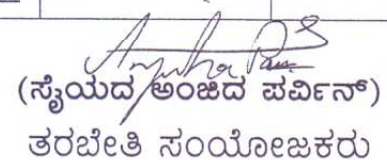 (ಸೈಯದ ಅಂಜದ ಪರ್ವಿನ್)
ತರಬೇತಿ ಸಂಯೋಜಕರು